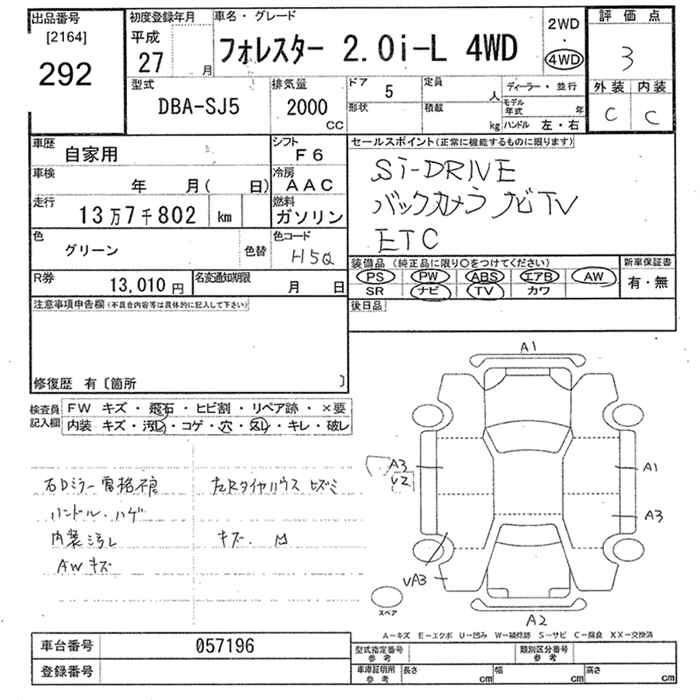 出品番号 初度登録年月 車名・グレード 評価点
[2164] 平成 27 月 フォレスター 2.0i-L 4WD 2WD ・ 4WD 3
292
型式 排気量 ドア 5 定員 人 ディーラー・並行 外装 内装
DBA-SJ5 2000 CC 形状 積載 kg モデル年式 年 C C
ハンドル 左・右
車歴 自家用 シフト F6 セールスポイント(正常に機能するものに限ります)
車検 年 月( 日) 冷房 AAC Si-DRIVE
走行 13万7千802 km 燃料 ガソリン バックカメラ ナビTV
色 グリーン 色替 色コード H5Q ETC
装備品 (純正品に限り○をつけてください) 新車保証書
R券 13,010円 名変通知期限 月 日 PS PW ABS エアB AW 有・無
SR ナビ TV カワ
注意事項申告欄(不具合内容等は具体的に記入して下さい) 後日品
修復歴 有〔箇所 〕
検査員 FW キズ・飛石・ヒビ割・リペア跡・×要
記入欄 内装 キズ・汚れ・コゲ・穴・欠し・キレ・破レ
右Dミラー電格不良 左Rタイヤハウス ヒズミ
ハンドル・ハゲ
内装 汚レ キズ・凹
AWキズ
A1
A3
Y2
A1
A3
UA3
スペア
A2
A-キズ E-エクボ U-凹み W-補修跡 S-サビ C-腐食 XX-交換済
車台番号 057196 型式指定番号 参考 類別区分番号 参考
登録番号 車庫証明用 参考 長さ cm 幅 cm 高さ cm